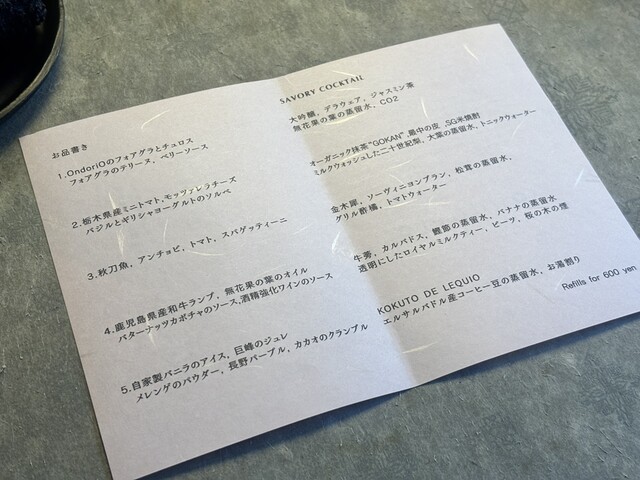 お品書き
1.OndoriOのフォアグラとチュロス
フォアグラのテリーヌ, ベリーソース
2.栃木県産ミニトマト,モッツァレラチーズ
バジルとギリシャヨーグルトのソルベ
3.秋刀魚, アンチョビ, トマト, スパゲッティーニ
4.鹿児島県産和牛ランプ, 無花果の葉のオイル
バターナッツカボチャのソース,酒精強化ワインのソース
5.自家製バニラのアイス, 巨峰のジュレ
メレンゲのパウダー, 長野パープル, カカオのクランブル
SAVORY COCKTAIL
大吟醸, デラウェア, ジャスミン茶
無花果の葉の蒸留水, CO2
オーガニック抹茶"GOKAN",最中の皮 ,SG米焼酎
ミルクウォッシュした二十世紀梨, 大葉の蒸留水, トニックウォーター
金木犀, ソーヴィニヨンブラン, 松茸の蒸留水,
グリル酢橘, トマトウォーター
牛蒡, カルバドス, 鰹節の蒸留水, バナナの蒸留水
透明にしたロイヤルミルクティー, ビーツ, 桜の木の煙
KOKUTO DE LEQUIO
エルサルバドル産コーヒー豆の蒸留水, お湯割り
Refills for 600 yen